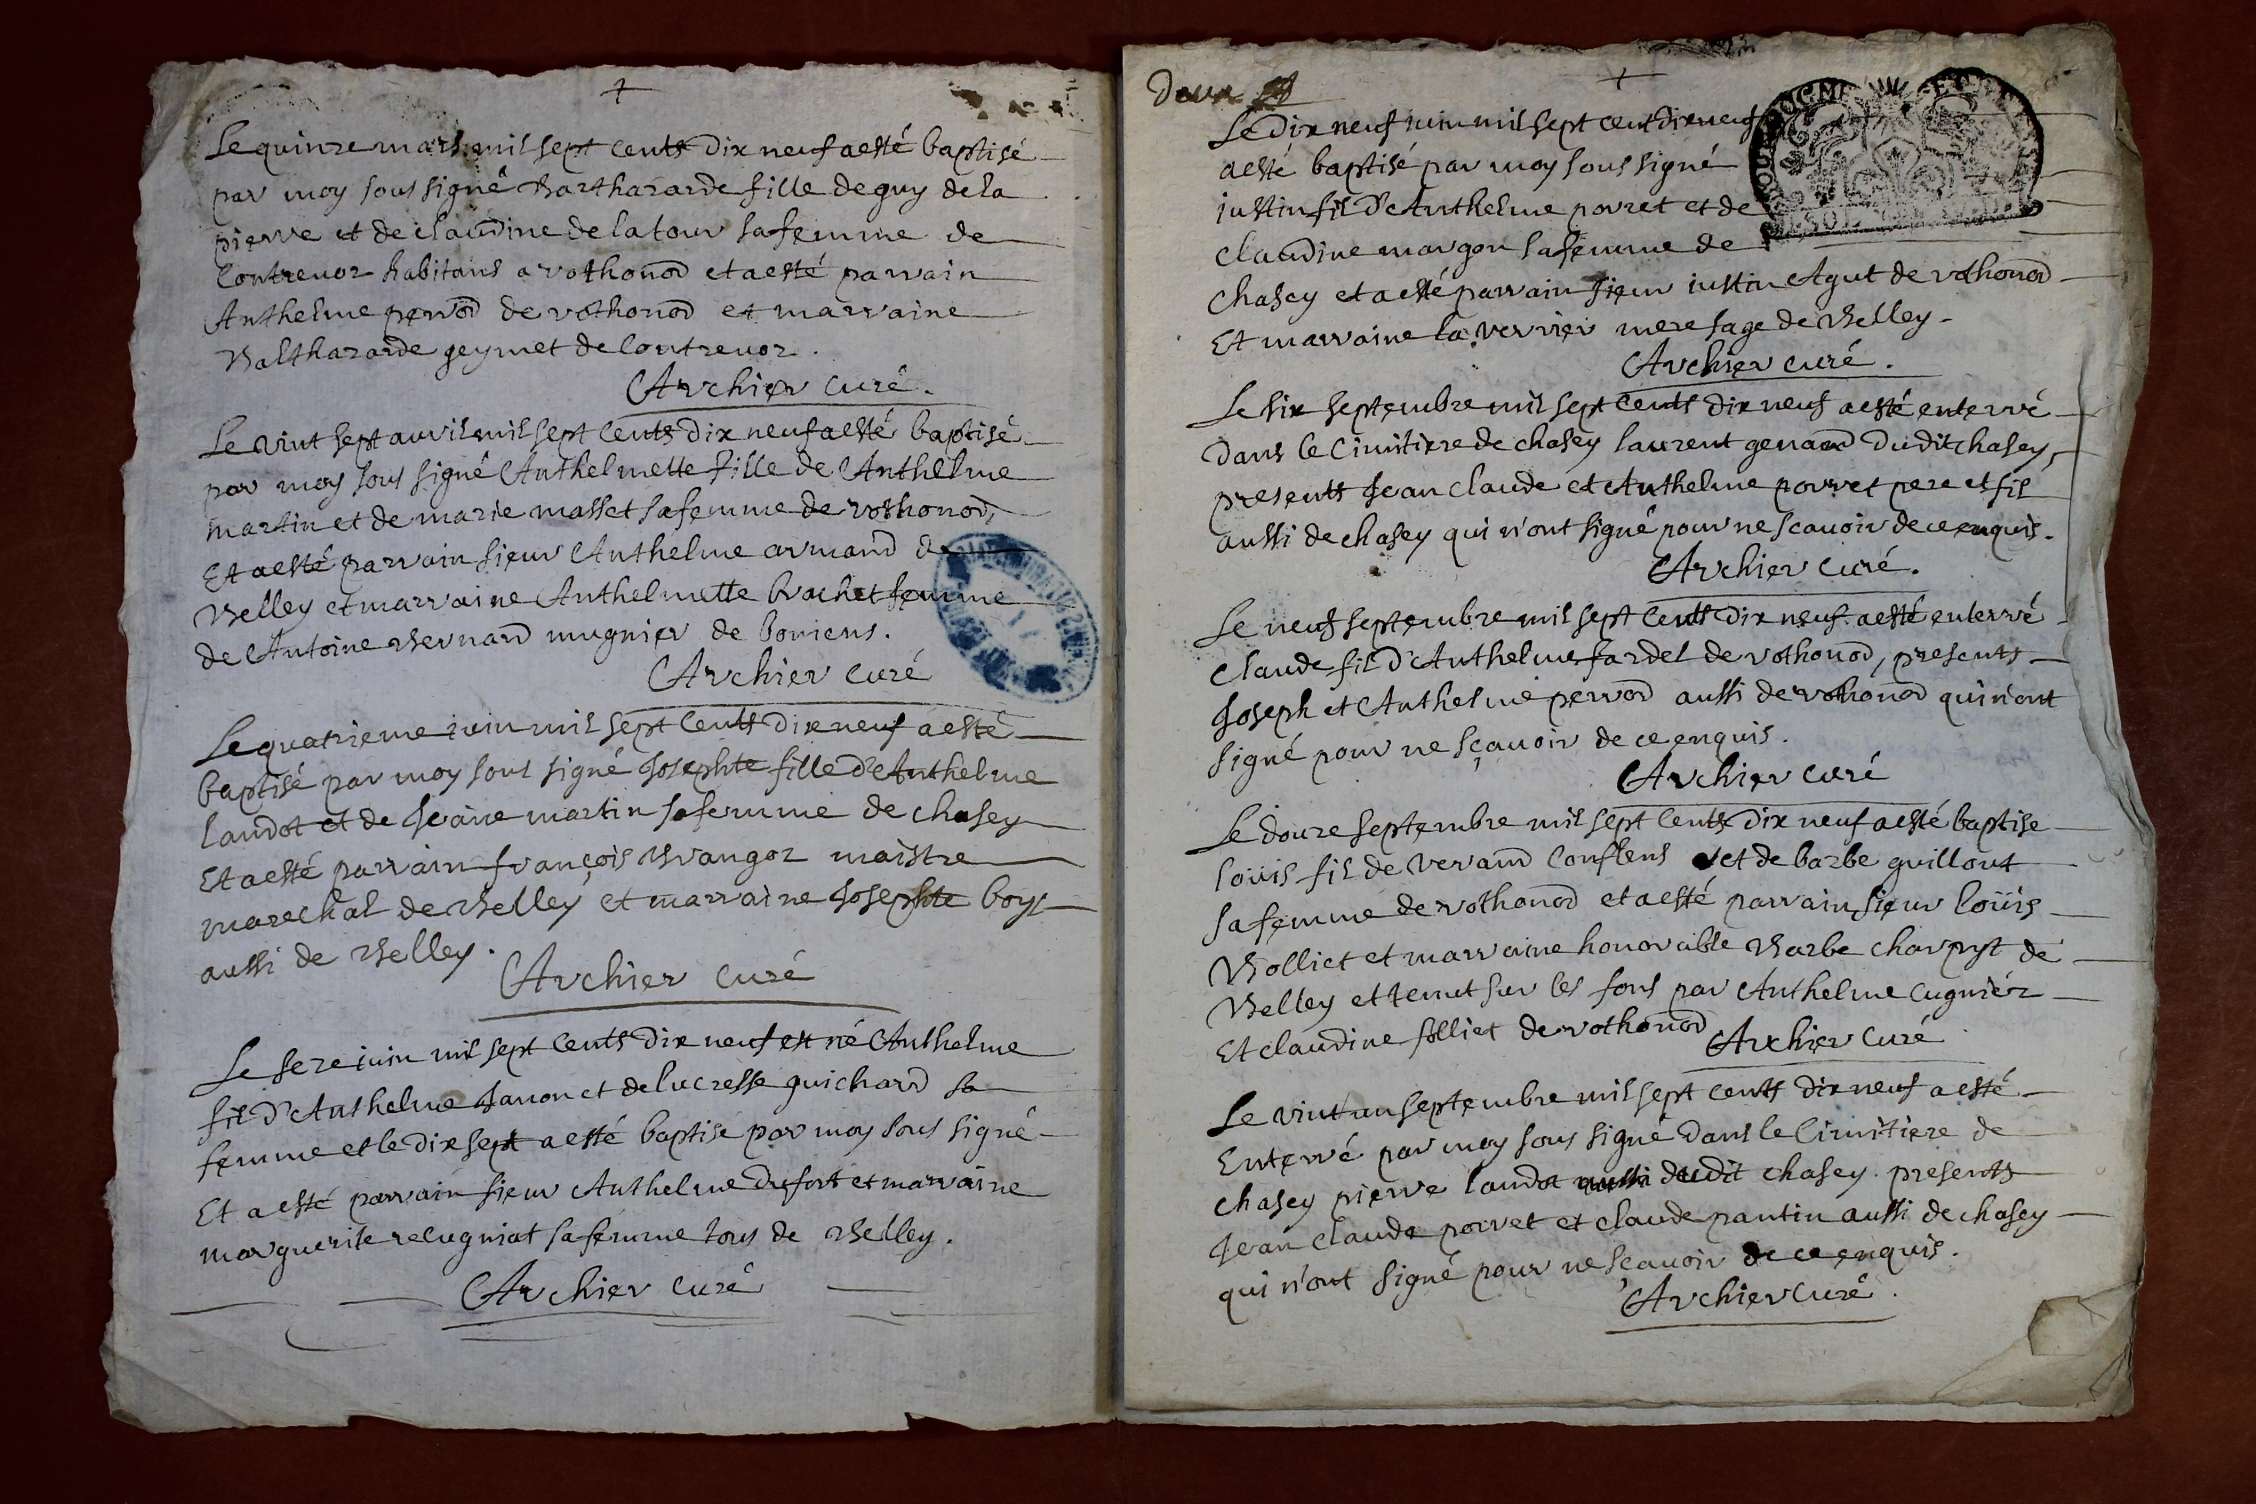 +
Le quinze mars mil sept cents dix neuf a esté baptisé
par moy sous signé Barthararde fille de guy de la
pierre et de claudine de la tour sa femme de
Contrevoz habitans a vothonod et a esté parrain
Anthelme perrod de vothonod et marraine
Balthararde geymet de Contrevoz.
Archier curé.
Le vint sept avril mil sept cents dix neuf a esté baptisé
par moy sous signé Anthelmette fille de Anthelme
martin et de marie masset sa femme de vothonod,
Et a esté parrain sieur Anthelme armand de
Belley et marraine Anthelmette brachet femme
de Antoine Bernard mugnier de boniens.
Archier curé
Le quatrieme iuin mil sept cents dix neuf a esté
baptisé par moy sous signé Josephte fille d'Anthelme
landot et de Jeane martin sa femme de chasey
Et a esté parrain françois Brangoz maistre
marechal de Belley et marraine Josephte boys
aussi de Belley.
Archier curé
Le seze iuin mil sept cents dix neuf est né Anthelme
fil d'Anthelme Janon et de lucresse guichard sa
femme et le dix sept a esté baptisé par moy sous signé
Et a esté parrain sieur Anthelme dufort et marraine
marguerite recugniat sa femme tous de Belley.
Archier curé
Deux
+
Le dix neuf iuin mil sept cent dix neuf
a esté baptisé par moy sous signé
iustin fil d'Anthelme porret et de
Claudine margon sa femme de
chasey et a esté parrain sieur iustin Agut de vothonod
Et marraine la verrier mere sage de Belley.
Archier curé.
Le six septembre mil sept cents dix neuf a esté enterré
dans le Cimitiere de chasey laurent genaod dudit chasey,
presents Jean claude et Anthelme porret pere et fil
aussi de chasey qui n'ont signé pour ne scavoir de ce enquis.
Archier curé.
Le neuf septembre mil sept cents dix neuf a esté enterré
Claude fil d'Anthelme fardel de vothonod, presents
Joseph et Anthelme perrod aussi de vothonod qui n'ont
signé pour ne sçavoir de ce enquis.
Archier curé
Le douze septembre mil sept cents dix neuf a esté baptise
louïs fil de verand Conflens et de barbe guillout
sa femme de vothonod et a esté parrain sieur loüis
Bolliet et marraine honorable Barbe charpyt de
Belley et tenut sur les fons par Anthelme Cugniér
Et claudine folliet de vothonod
Archier curé
Le vint un septembre mil sept cents dix neuf a esté
Enterré par moy sous signé dans le Cimitiere de
chasey pierre landot aussi dudit chasey presents
Jean claude porret et claude pantin aussi de chasey
qui n'ont signé pour ne sçavoir de ce enquis.
Archier curé.